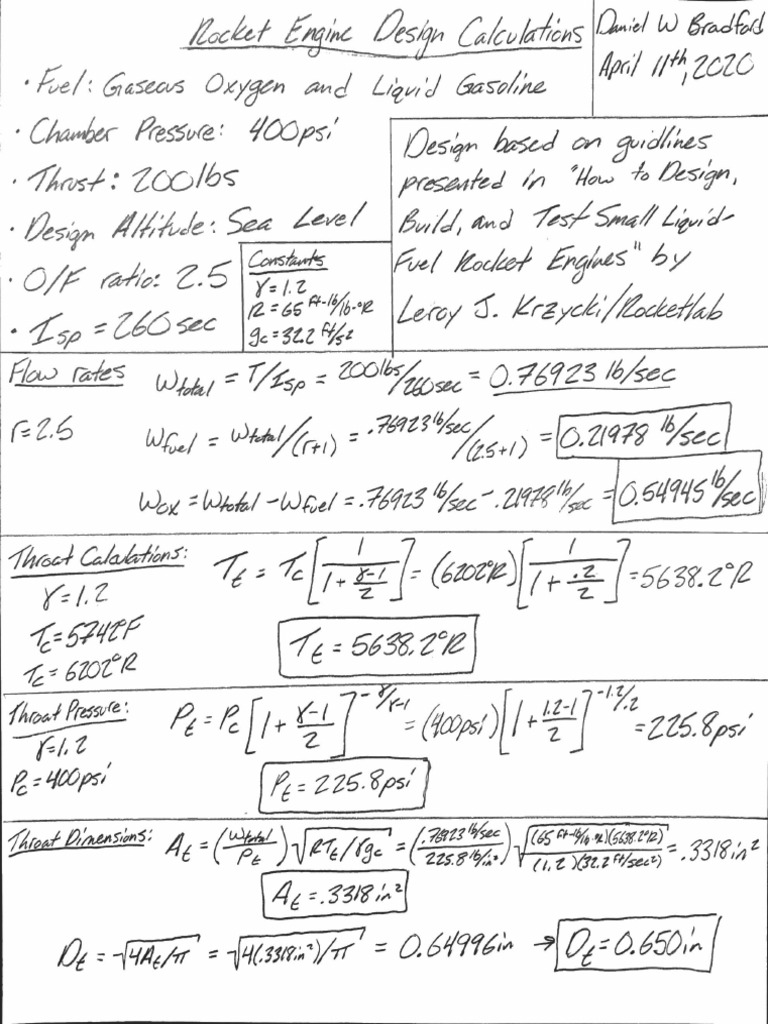 Rocket Engine Design Calculations
Daniel W Bradford
April 11th, 2020
• Fuel: Gaseous Oxygen and Liquid Gasoline
• Chamber Pressure: 400psi
• Thrust: 200lbs
• Design Altitude: Sea Level
• O/F ratio: 2.5
• Isp = 260sec
Constants
γ=1.2
R=65 ft-lb/lb-°R
gc=32.2 ft/s²
Design based on guidlines
presented in "How to Design,
Build, and Test Small Liquid-
Fuel Rocket Engines" by
Leroy J. Krzycki/Rocketlab
Flow rates
Wtotal = T/Isp = 200lbs/260sec = 0.76923 lb/sec
r=2.5
Wfuel = Wtotal/(r+1) = .76923 lb/sec/(2.5+1) = 0.21978 lb/sec
Wox = Wtotal - Wfuel = .76923 lb/sec - .21978 lb/sec = 0.54945 lb/sec
Throat Calculations:
γ=1.2
Tc=5742°F
Tc=6202°R
Tt = Tc[1/(1+(γ-1)/2)] = (6202°R)[1/(1+.2/2)] = 5638.2°R
Tt = 5638.2°R
Throat Pressure:
γ=1.2
Pc=400psi
Pt = Pc[1+(γ-1)/2]^(-γ/γ-1) = (400psi)[1+(1.2-1)/2]^(-1.2/.2) = 225.8psi
Pt = 225.8psi
Throat Dimensions:
At = (Wtotal/Pt)√(RTt/γgc) = (.76923 lb/sec/225.8 lb/in²)√((65 ft-lb/lb-°R)(5638.2°R)/(1.2)(32.2 ft/sec²)) = .3318in²
At = .3318in²
Dt = √(4At/π) = √(4(.3318in²)/π) = 0.64996in → Dt = 0.650in